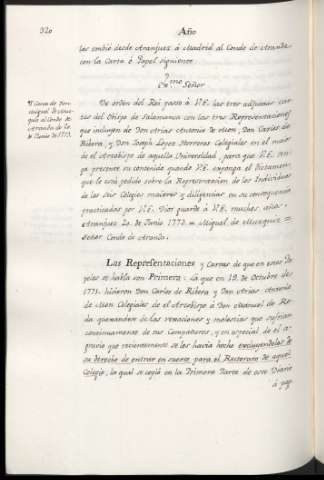 320
Año
les embio desde Aranjuez à Madrid al Conde de Aranda
con la Carta ò Papel siguiente
Ex.mo Señor
El Conde de Don
Miguel de Muz-
quiz al Conde de
Aranda de 20
de Junio de 1772.
De orden del Rei paso à V.E. las tres adjuntas Car
tas del Obispo de Salamanca con las tres Representaciones
que incluyen de Don Arias Antonio de Mon, Don Carlos de
Ribera, y Don Joseph López Herreros Colegiales en el maior
de el Arzobispo de aquella Universidad, para que V.E. ten-
ga presente su contenido quando V.E. exponga el Dictamen
que le està pedido sobre la Representacion de los Individuos
de los seis Colegios maiores y diligencias en su consequencia
practicadas por V.E. Dios guarde à V.E. muchos años.
Aranjuez 20 de Junio 1772 = Miguel de Muzquiz =
Señor Conde de Aranda.
Las Representaciones y Cartas de que en estos Pa
peles se habla son Primera: la que en 19 de Octubre de
1771 hicieron Don Carlos de Ribera y Don Arias Antonio
de Mon Colegiales de el Arzobispo à Don Manuel de Ro-
da quexandose de las vexaciones y molestias que sufrian
continuamente de sus Compañeros, y en especial de el a-
gravio que recientemente se les havia hecho excluyendoles de
su derecho de entrar en suerte para el Rectorato de aquel
Colegio, la qual se copiò en la Primera Parte de este Diario
à pag